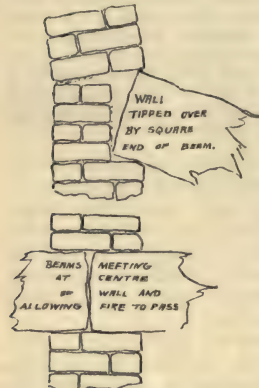 WALL
TIPPED OVER
BY SQUARE
END OF BEAM.
BEAMS MEETING
AT CENTRE
OF WALL AND
ALLOWING FIRE TO PASS